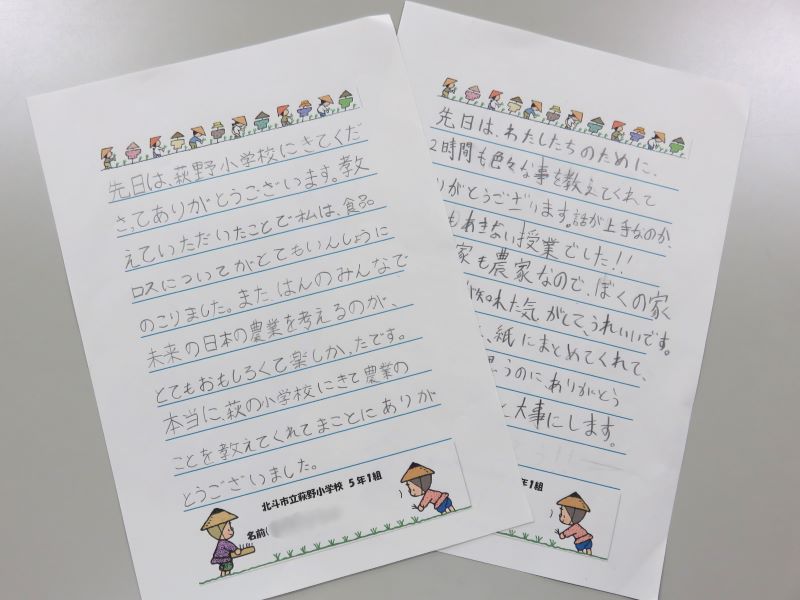 先日は、萩野小学校にきてくだ
さってありがとうございます。教
えていただいたことで私は、食品
ロスについてがとてもいんしょうに
のこりました。また、はんのみんなで
未来の日本の農業を考えるのが、
とてもおもしろくて楽しかったです。
本当に、萩の小学校にきて農業の
ことを教えてくれてまことにありが
とうございました。
北斗市立萩野小学校 5年1組
名前(
先日は、わたしたちのために、
2時間も色々な事を教えてくれて
りがとうございます。話が上手なのか、
もあきない授業でした!!
家も農家なので、ぼくの家く
知れた気がして、うれしいです。
、紙にまとめてくれて、
思うのに、ありがとう
大事にします。
年1組